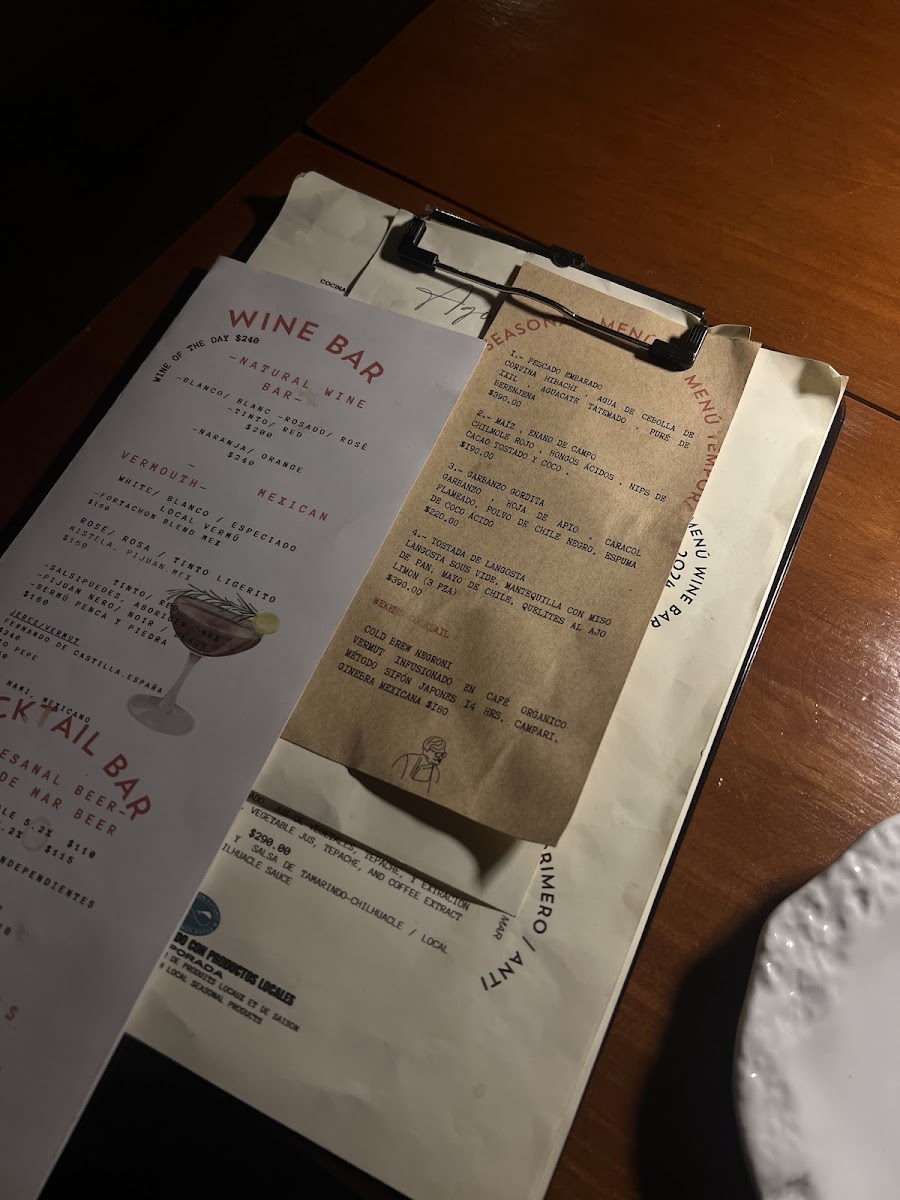 WINE BAR
WINE OF THE DAY $240
-NATURAL WINE
BAR-
-BLANCO/ BLANC -ROSADO/ ROSÉ
-TINTO/ RED
$200
-NARANJA/ ORANGE
$240
-
VERMOUTH- MEXICAN
WHITE/ BLANCO / ESPECIADO
LOCAL VERMÚ
-FORTACHON BLEND MEX
$160
ROSÉ/ ROSA / TINTO LIGERITO
MISTILA, PIJUAN.MEX
$160
TINTO/
-SALSIPUEDES,
-PIJUAN NERO/ NOIR
-BERMÚ PENCA Y PIEDRA
$160
JEREZ/VERMUT
FERNANDO DE CASTILLA.ESPAÑA
$240
PEPE
NAMI, MEXICANO
COCKTAIL BAR
BEER-
DE MAR BEER
5.2% $110
.2% $115
INDEPENDIENTES
COCINA
SEASON MENÚ
MENÚ TEMPOR
1.- PESCADO EMBARADO
CORVINA HIBACHI . AGUA DE CEBOLLA DE
IXIL . AGUACATE TATEMADO . PURÉ DE
BERENJENA
$390.00
2.- MAÍZ . ENANO DE CAMPO
CHILMOLE ROJO . HONGOS ÁCIDOS . NIPS DE
CACAO TOSTADO Y COCO .
$190.00
3.- GARBANZO GORDITA
GARBANZO . HOJA DE APIO . CARACOL
FLAMEADO, POLVO DE CHILE NEGRO, ESPUMA
DE COCO ÁCIDO
$220.00
4.- TOSTADA DE LANGOSTA
LANGOSTA SOUS VIDE, MANTEQUILLA CON MISO
DE PAN, MAYO DE CHILE, QUELITES AL AJO
LIMON (3 PZA)
$390.00
COLD BREW NEGRONI
VERMUT INFUSIONADO EN CAFÉ ORGÁNICO
MÉTODO SIFÓN JAPONES 14 HRS, CAMPARI,
GINEBRA MEXICANA $180
MENÚ WINE BAR
2024
VEGETALES, TEPACHE, Y EXTRACION
VEGETABLE JUS, TEPACHE, AND COFFEE EXTRACT
$290.00
Y SALSA DE TAMARINDO-CHILHUACLE / LOCAL
ILHUACLE SAUCE
MAR
PRIMERO / ANTI
DO CON PRODUCTOS LOCALES
PORADA
DE PRODUITS LOCAUX ET DE SAISON
LOCAL SEASONAL PRODUCTS